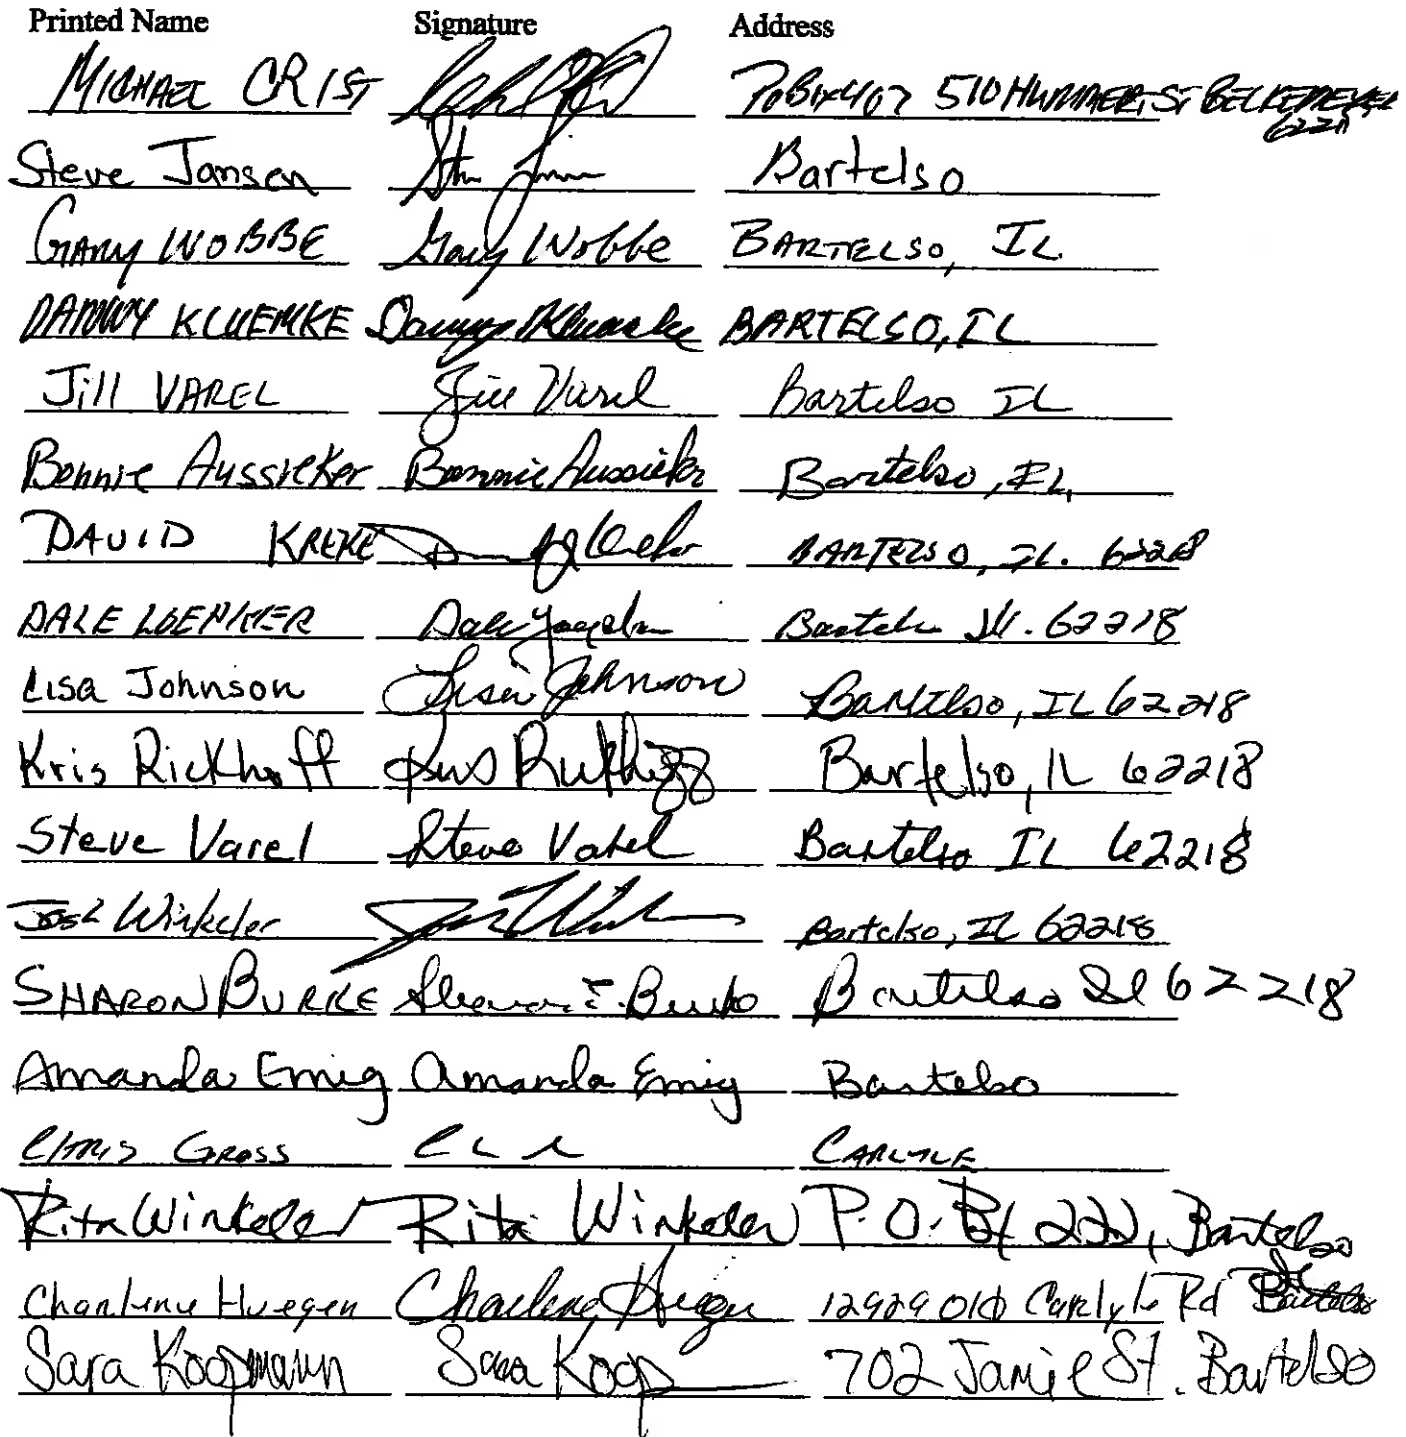 Printed Name Signature Address
MICHAEL CRIST PO Box 407 510 HUMMER ST BECKEMEYER
Steve Jansen Bartelso
GARY WOBBE Gary Wobbe BARTELSO, IL
DANNY KLUEMKE Danny Kluemke BARTELSO, IL
Jill VAREL Jill Varel Bartelso IL
Bonnie Aussieker Bonnie Aussieker Bartelso, IL
DAVID KREKE BARTELSO, IL. 62218
DALE Bartelso Ill. 62218
Lisa Johnson Lisa Johnson Bartelso, IL 62218
Kris Rickhoff Kris Rickhoff Bartelso, IL 62218
Steve Varel Steve Varel Bartelso IL 62218
Josh Winkeler Bartelso, IL 62218
SHARON BURKE Sharon E. Burke Bartelso Il 62218
Amanda Emig Amanda Emig Bartelso
CHRIS GROSS CARLYLE
Rita Winkeler Rita Winkeler P.O. Bx 222, Bartelso
Charlene Huegen Charlene Huegen 12929 Old Carlyle Rd Bartelso
Sara Koopmann Sara Koop 702 Jamie St. Bartelso